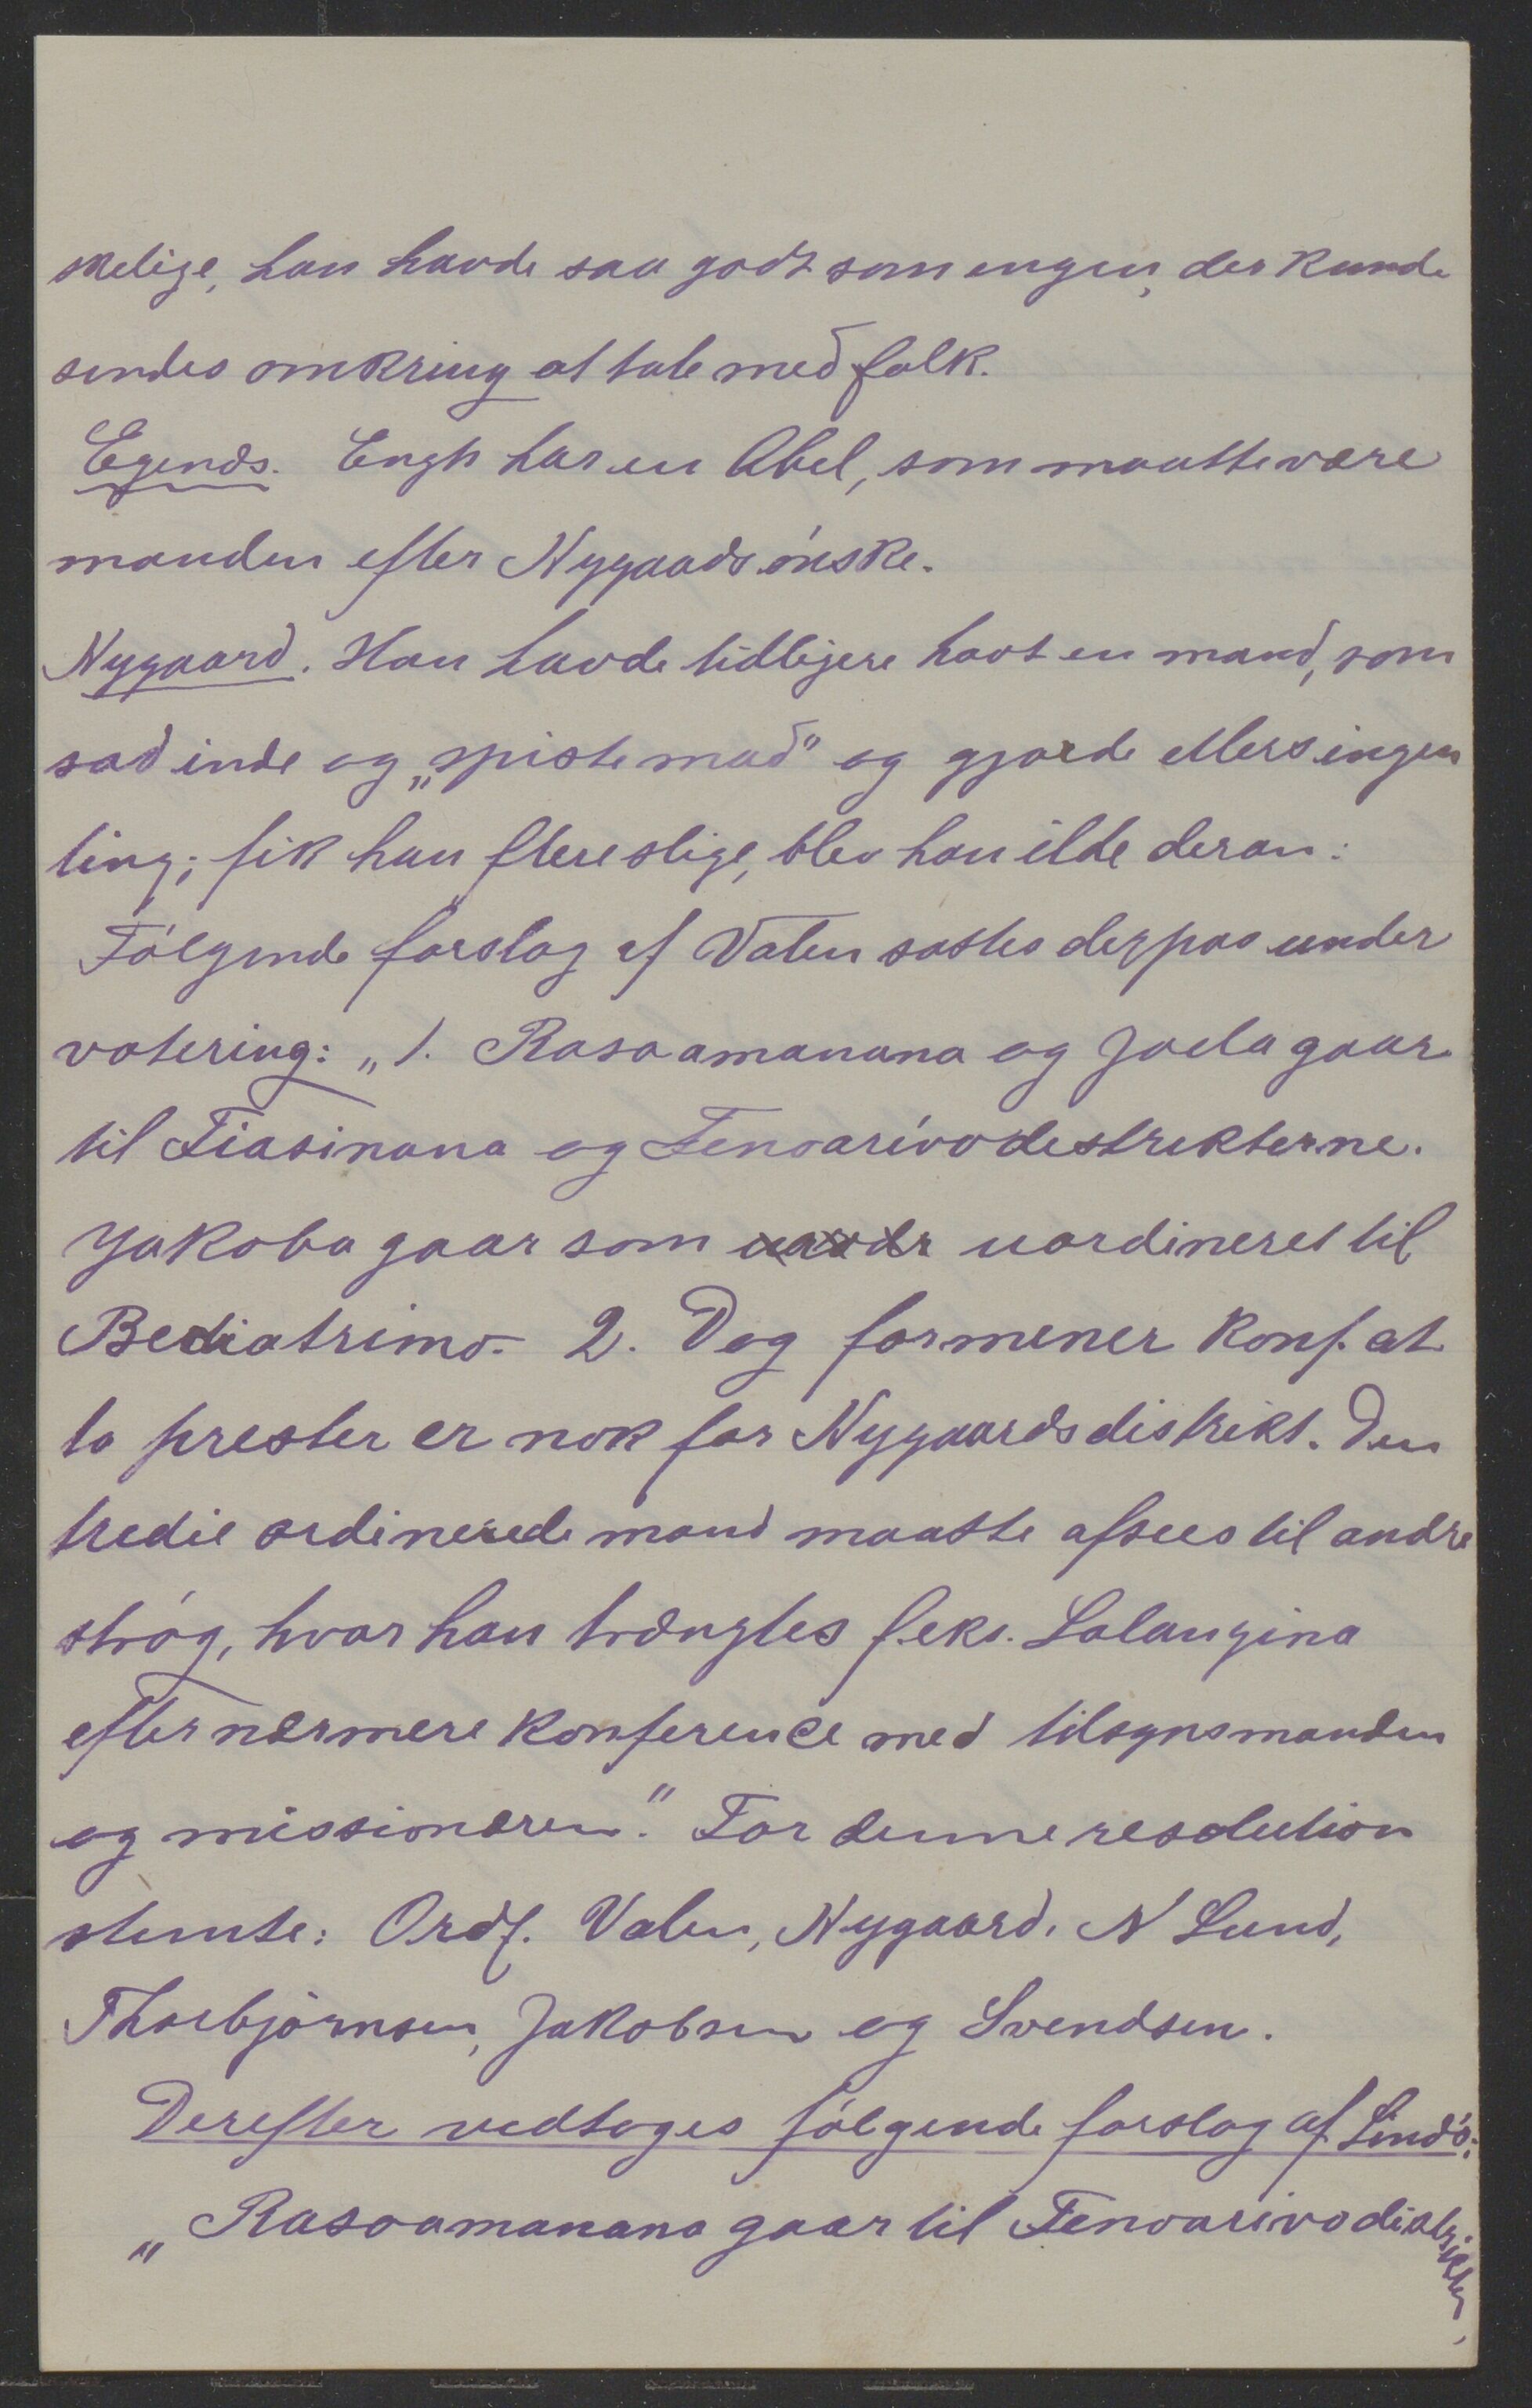 skelige, han havde saa godt som ingen, der kunde
sendes omkring at tale med folk.
Egenæs. Engh har en Abel, som maatte være
manden efter Nygaards ønske.
Nygaard. Han havde tidligere havt en mand, som
sad inde og „spiste mad" og gjorde ellers ingen
ting; fik han flere slige, blev han ilde deran.
Følgende forslag af Valen sattes derpaa under
votering: „1. Rasoamanana og Joela gaar
til Fiasinana og Fenoarivodestrikterne.
Jakoba gaar som uordineret til
Bediatrimo. 2. Dog formener Konf. at
to prester er nok for Nygaards distrikt. Den
tredie ordinerede mand maatte afsees til andre
strøg, hvor han trængtes f.eks. Lalangina
efter nærmere Konference med tilsynsmanden
og missionæren." For denne resolution
stemte: Ordf. Valen, Nygaard, N Lund,
Thorbjørnsen, Jakobsen og Svendsen.
Derefter vedtoges følgende forslag af Lindø:
„Rasoamanana gaar til Fenoarivodistriktet,